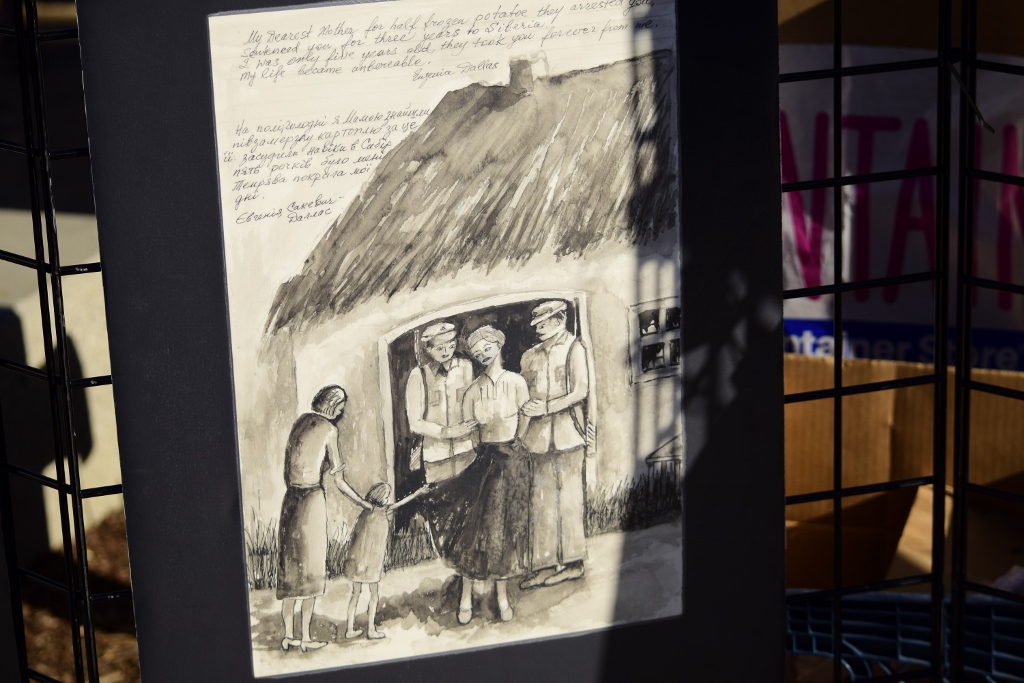 My Dearest Mother for half frozen potatoe they arrested you,
sentenced you, for three years to Siberia.
I was only five years old, they took you forever from me.
My life became unbearable.
Eugenia Dallas
На полі голодні я Мамою знайшли
півзамерзлу картоплю за це
її засудили навіки в Сибір
п'ять рочків було мені
темрява покрила мої
дні.
Євгенія Сакевич-
Даллас
NTAIN
ntainer Store